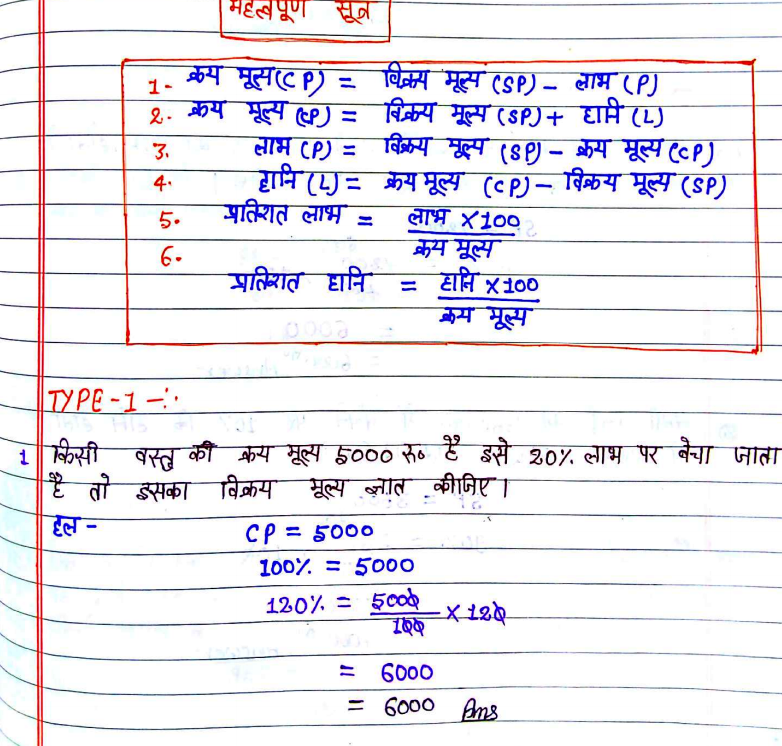 महत्वपूर्ण सूत्र
1- क्रय मूल्य(CP) = विक्रय मूल्य (SP) - लाभ (P)
2. क्रय मूल्य (CP) = विक्रय मूल्य (SP) + हानि (L)
3. लाभ (P) = विक्रय मूल्य (SP) - क्रय मूल्य (CP)
4. हानि (L) = क्रय मूल्य (CP) - विक्रय मूल्य (SP)
5. प्रतिशत लाभ = लाभ X100
क्रय मूल्य
6.
प्रतिशत हानि = हानि X 100
क्रय मूल्य
TYPE-1 -:
1 किसी वस्तु की क्रय मूल्य 5000 रू० है इसे 20% लाभ पर बेचा जाता
है तो इसका विक्रय मूल्य ज्ञात कीजिए।
हल -
CP = 5000
100% = 5000
120% = 5000 X 120
100
= 6000
= 6000 Ans